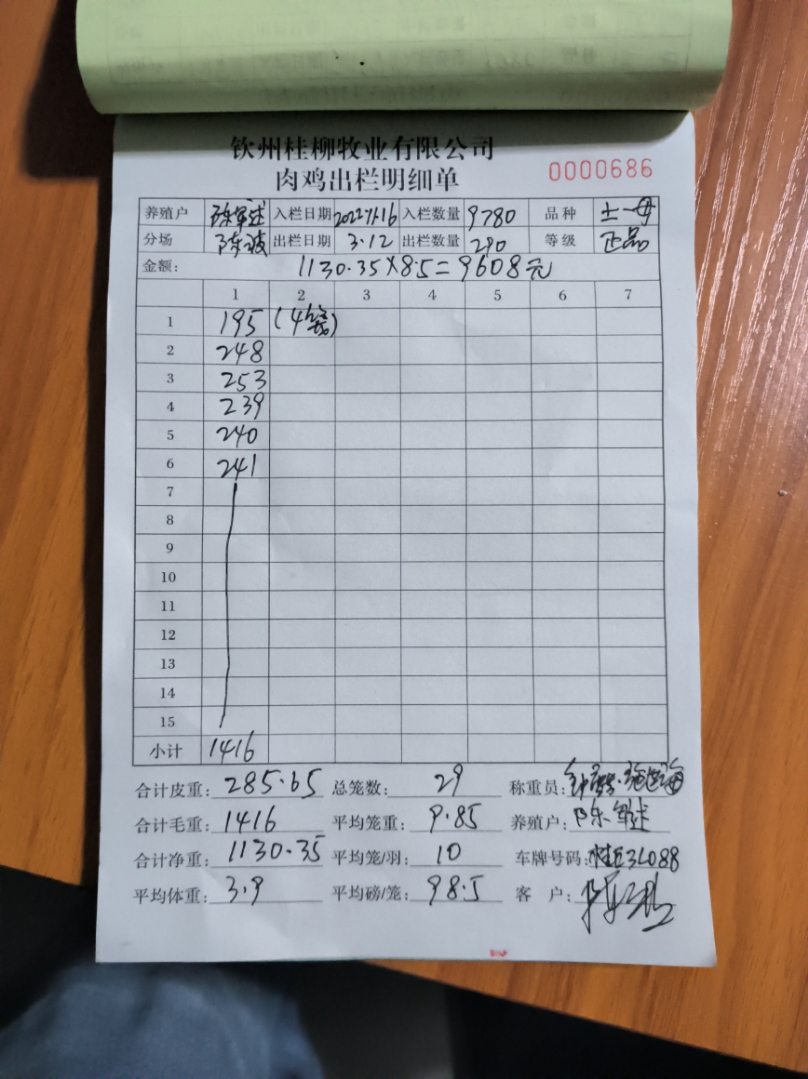 钦州桂柳牧业有限公司
肉鸡出栏明细单 0000686
养殖户 陈军述 入栏日期 2022-11-16 入栏数量 9780 品种 土一母
分场 陈波 出栏日期 3.12 出栏数量 290 等级 正品
金额: 1130.35×8.5=9608元
1 2 3 4 5 6 7
1 195 (4笼)
2 248
3 253
4 239
5 240
6 241
7
8
9
10
11
12
13
14
15
小计 1416
合计皮重: 285.65 总笼数: 29 称重员:
合计毛重: 1416 平均笼重: 9.85 养殖户: 陈军述
合计净重: 1130.35 平均笼/羽: 10 车牌号码:
平均体重: 3.9 平均磅/笼: 98.5 客 户: